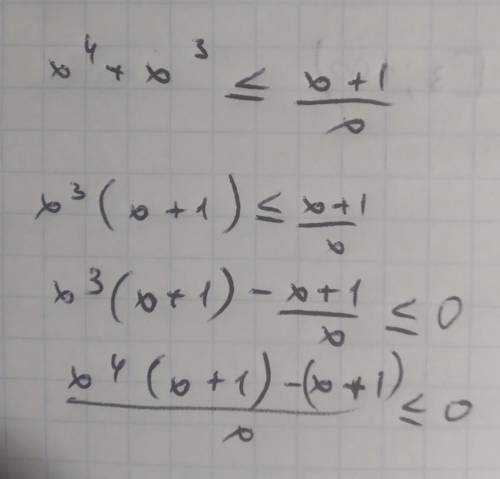 x^4 + x^3 ≤ (x + 1)/x
x^3 (x + 1) ≤ (x + 1)/x
x^3 (x + 1) - (x + 1)/x ≤ 0
(x^4 (x + 1) - (x + 1))/x ≤ 0